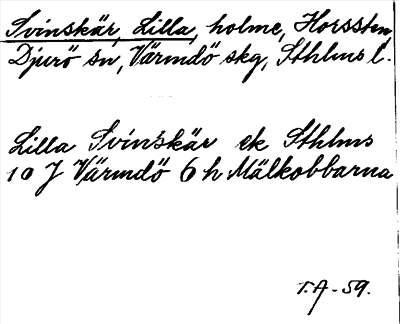 Svinskär, Lilla, holme, Horssten,
Djurö sn, Värmdö skg, Sthlms l.
Lilla Svinskär ek Sthlms
10 J Värmdö 6 h Mälkobbarna
T.A-59.